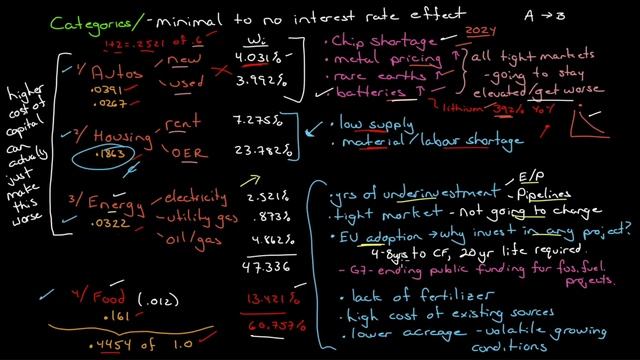 Categories/-minimal to no interest rate effect
A → B
1+2=.2521 of .6
Wi
1/ Autos
new
4.031%
used
3.992%
.0391
.0267
• Chip shortage
2024
• metal pricing ↑
• rare earths ↑
• batteries ↑
all tight markets
- going to stay
elevated/get worse
lithium 392% YoY
higher
cost of
capital
can
actually
just
make
this
worse
2/ Housing
rent
7.275%
OER
23.782%
.1863
• low supply
• material/labour shortage
3/ Energy
electricity
2.521%
utility gas
.873%
oil/gas
4.862%
.0322
47.336
• yrs of underinvestment
E/P
Pipelines
• tight market - not going to change
• EU adoption → why invest in any project?
4-8yrs to CF, 20yr life required.
- G7-ending public funding for fos.fuel
projects.
4/ Food (.012)
13.421%
.161
60.757%
.4454 of 1.0
• lack of fertilizer
• high cost of existing sources
• lower acreage -volatile growing
conditions